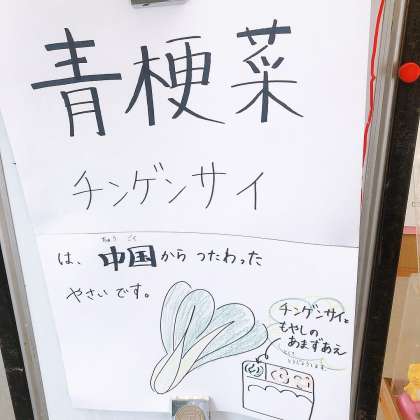 青梗菜
チンゲンサイ
ちゅう ごく
は、中国から つたわった
やさいです。
チンゲンサイと
もやしの
あまずあえ